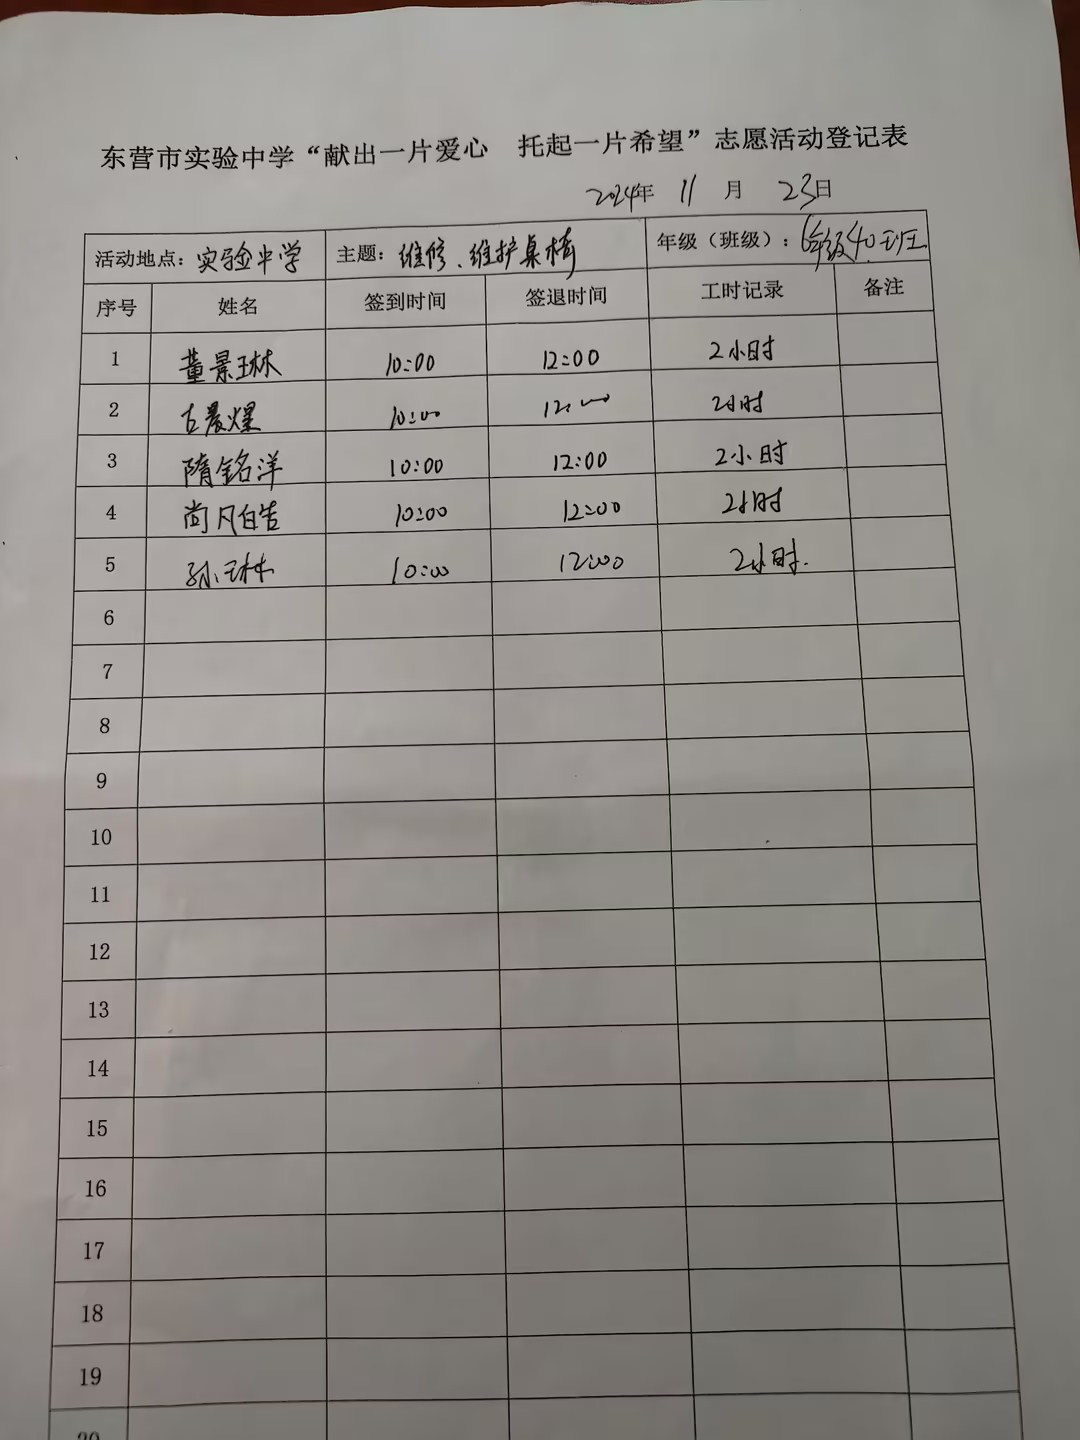 东营市实验中学“献出一片爱心 托起一片希望”志愿活动登记表
2024年 11 月 23日
活动地点：实验中学 主题：维修、维护桌椅 年级（班级）：6年级40班
序号 姓名 签到时间 签退时间 工时记录 备注
1 董景琳 10:00 12:00 2小时
2 古晨煜 10:00 12:00 2小时
3 隋铭洋 10:00 12:00 2小时
4 尚凡皓 10:00 12:00 2小时
5 孙琳 10:00 12:00 2小时.
6
7
8
9
10
11
12
13
14
15
16
17
18
19
20